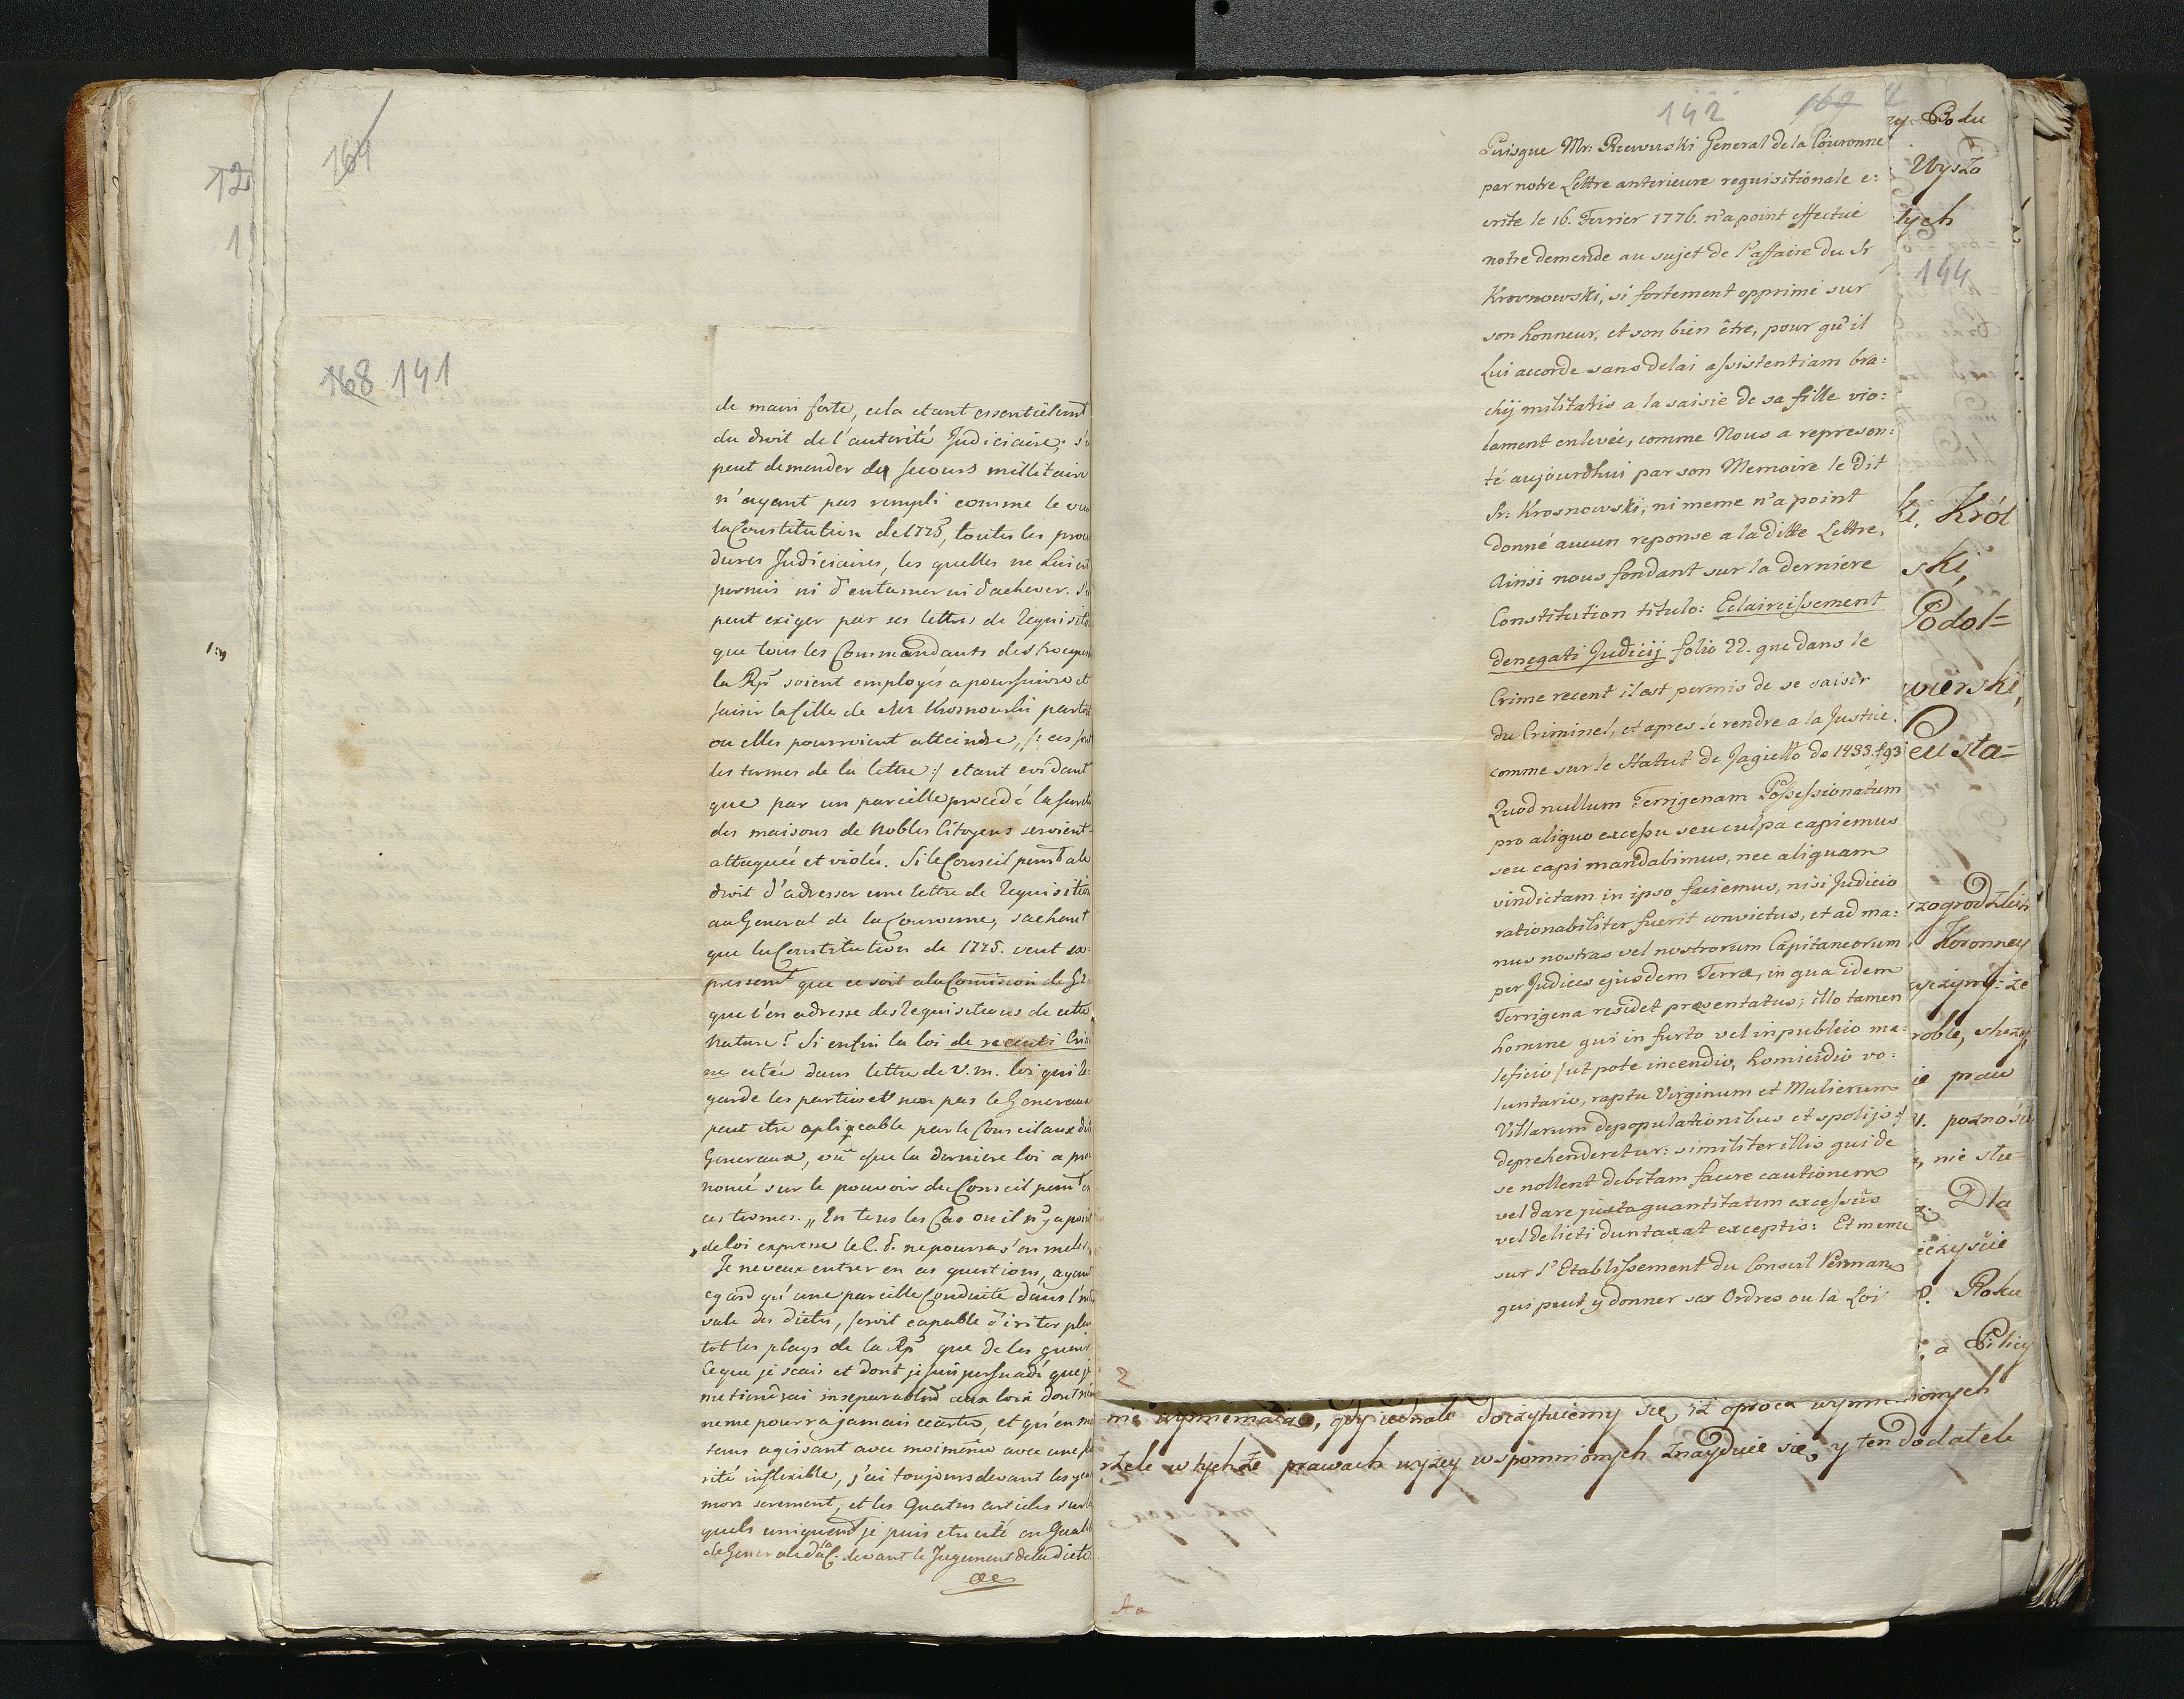 12
1
164
168 141
de main forte, cela etant essentielemt
du droit de l'autorité Judiciaire; s'il
peut demender des secours millitaire
n'ayant pas rempli comme le veut
la Constitution de 1775, toutes les proce
dures Judiciaires, les quelles ne Lui est
permis ni d'entamer ni d'achever. S'il
peut exiger par ses lettres de requisitio
que tous les Commandants des troupes
la Rp. soient employés a poursuivre et
saisir la fille de Mr Krosnowski partout
ou elles pourroient atteindre, /: ces sont
les termes de la lettre :/ etant evidant
que par un pareille procedé la sureté
des maisons de Nobles Citoyens seroient
attaqueé et violée. Si le Conseil permt a le
droit d'adresser une lettre de requisition
au General de la Couronne, sachant
que la Constitution de 1775. veut ex-
pressemt que ce soit a la Comission de G
que l'on adresse des requisitions de cette
Nature? Si enfin la loi de recenti Crimi
ne citée dans lettre de V. M. loi qui re-
garde les parties et non pas le Generaux
peut etre apliqueable par le Conseil aux dits
Generaux, vû que la derniere loi a pro-
noncé sur le pouvoir du Conseil permt en
ces termes. „ En tous les Cas ou il n'y a point
„ de loi expresse le C. P. ne pourra s'en meler
Je ne veux entrer en ces questions, ayant
egard qu'une pareille Conduite dans l'inter
vale des dietes, seroit capable d'iriter plu
tot les plays de la Rp. que de les guerir
Ce que je scais et dont je suis persuadé que je
me tiendrai inseparablemt aux loix dont rien
ne me pourra jamais ecarter, et qu'en me
tems agissant avec moimême avec une se
rité inflexible, j'ai toujours devant les yeux
mon serement, et les Quatres articles sur les
quels uniquemt je puis etre cité en Qualité
de General d'la C. devant le Jugement de la diete
142 169
Puisque Mr: Rzewuski General de la Couronne
par notre Lettre anterieure requisitionale e:
crite le 16. Fevrier 1776. n'a point effectué
notre demende au sujet de l'affaire du Sr
Krosnowski, si fortement opprimé sur
son honneur, et son bien être, pour qu'il
Lui accorde sans delai assistentiam bra:
chij militaris a la saisie de sa fille vio:
lament enlevée, comme Nous a represen:
té aujourdhui par son Memoire le dit
Sr: Krosnowski, ni meme n'a point
donné aucun reponse a la ditte Lettre,
Ainsi nous fondant sur la derniére
Constitution titulo: Eclaircissement
denegati Judicij folio 22. que dans le
Crime recent il est permis de se saisir
du Criminel, et apres le rendre a la Justice.
comme sur le Statut de Jagiello de 1433. f 93
Quod nullum Terrigenam Possessionatum
pro aliquo excessu seu culpa capiemus
seu capi mandabimus, nec aliquam
vindictam in ipso faciemus, nisi Judicio
rationabiliter fuerit convictus, et ad ma:
nus nostras vel nostrorum Capitaneorum
per Judices ejusdem Terræ, in qua idem
Terrigena residet præsentatus; illo tamen
homine qui in furto vel in publico ma:
leficio /ut pote incendio, homicidio vo:
luntario, raptu Virginum et Mulierum
Villarum depopulationibus et spolijs :/
deprehenderetur: similiter illis qui de
se nollent debitam facere cautionem
vel dare juxta quantitatem excessûs
vel delicti duntaxat exceptis: Et meme
sur l'Etablissement du Conseil Perman
qui peut y donner ses Ordres ou la Loi
2
y. Roku
Wyszo
tych
144
ki, Król
ski,
Podol=
wierski,
Eusta=
Koronney
ie praw
nie stu=
Dla
Roku
a Pilicy
gdy iednak doczytuiemy się, iż oprocz wymienionych
w tychże prawach wyżey wspomnionych znayduie się, y ten dodatek